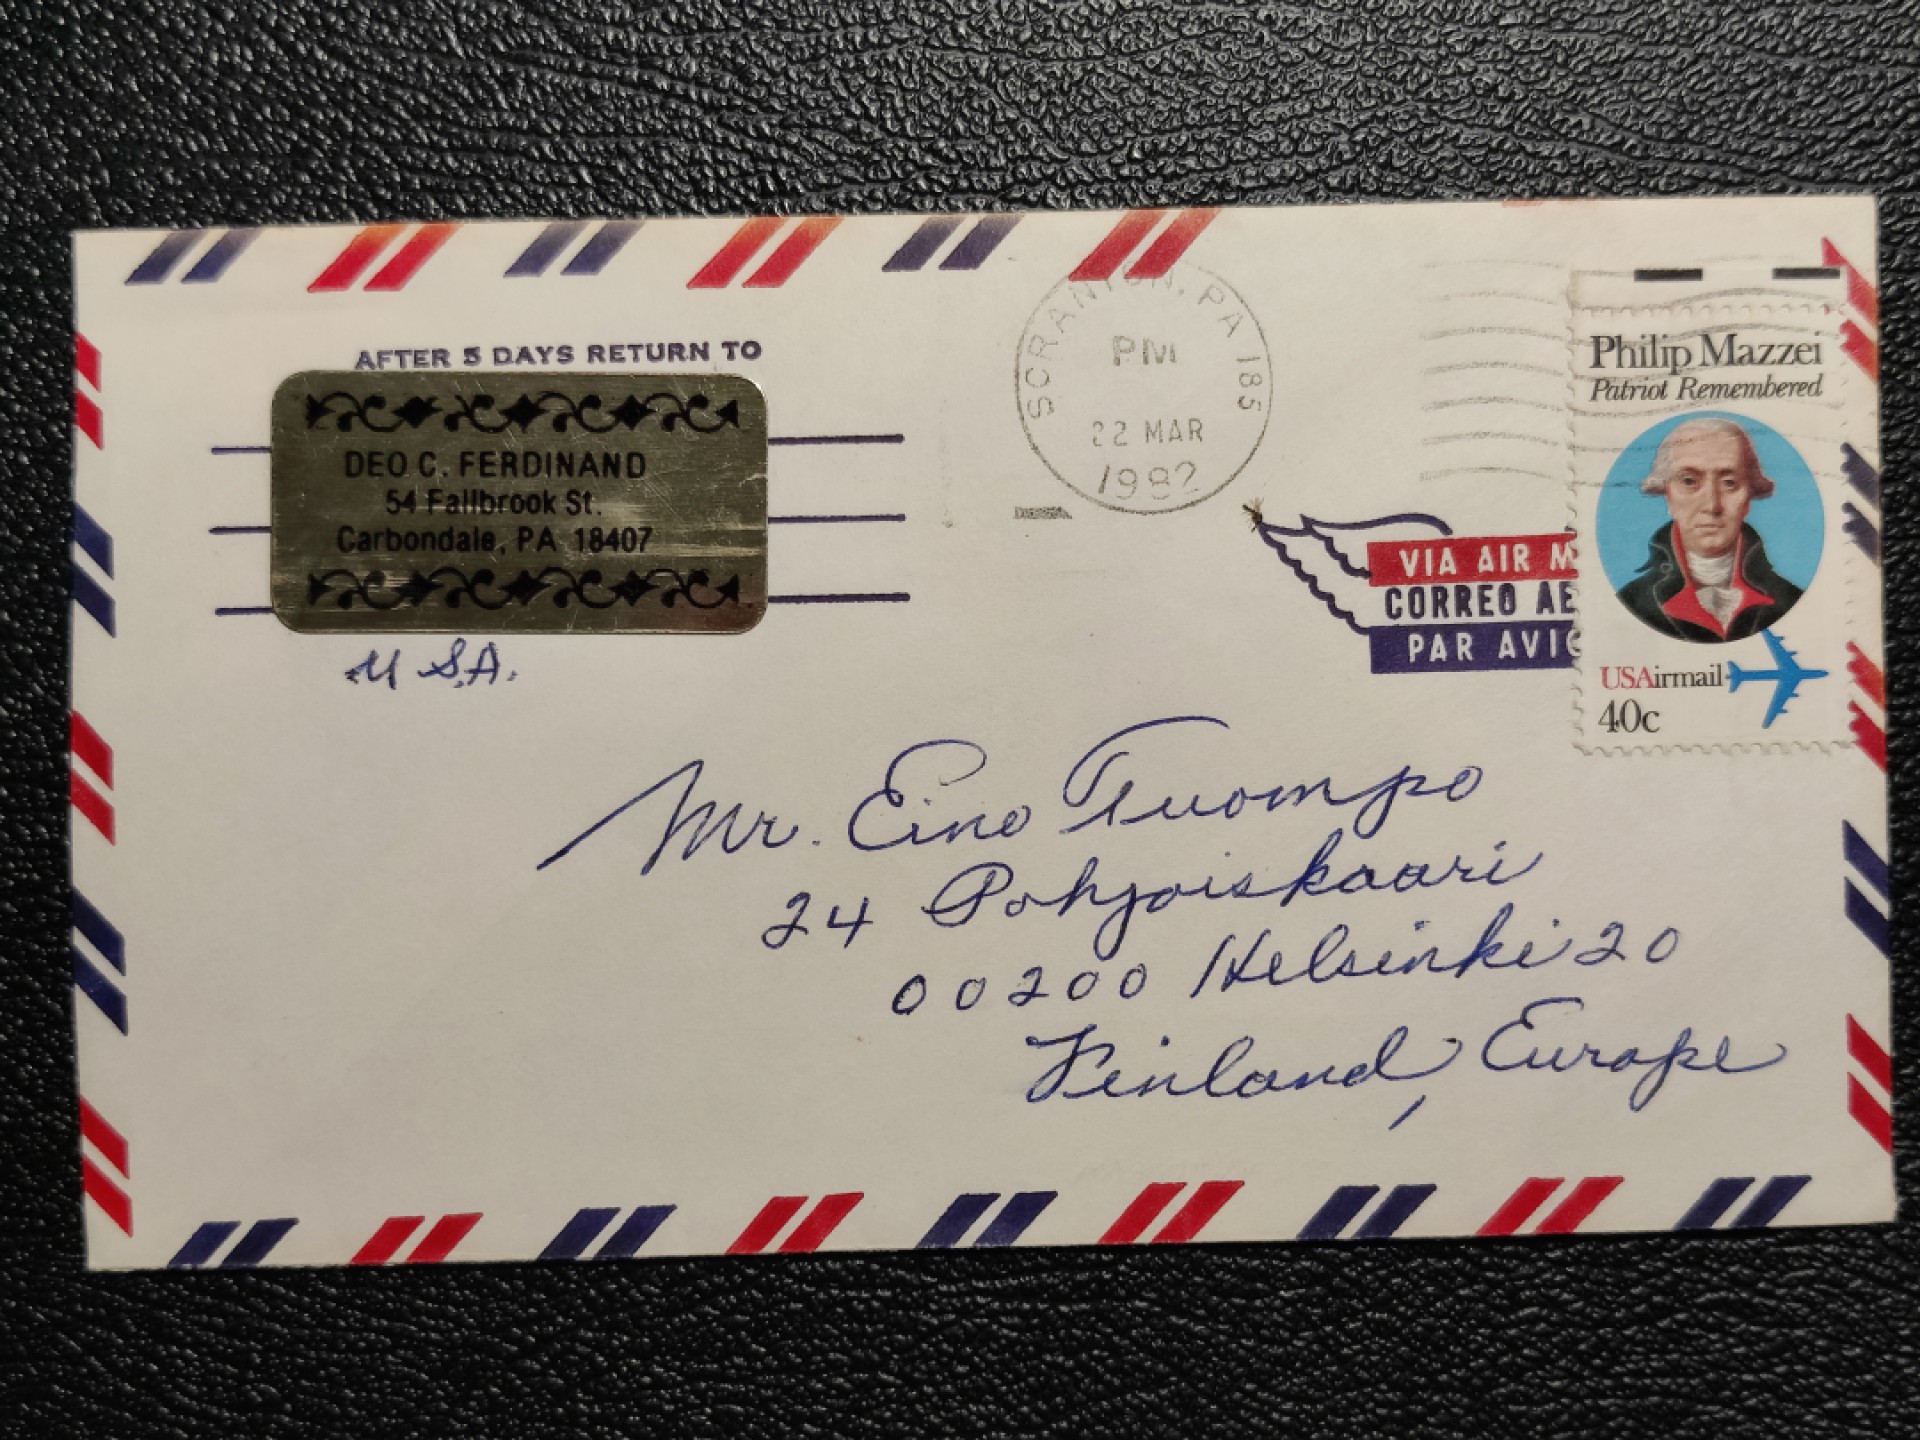 AFTER 5 DAYS RETURN TO
DEO C. FERDINAND
54 Fallbrook St.
Carbondale, PA 18407
U.S.A.
SCRANTON, PA 185
PM
22 MAR
1982
Philip Mazzei
Patriot Remembered
USAirmail
40c
VIA AIR M
CORREO AE
PAR AVIO
Mr. Eino Tuompo
24 Pohjoiskaari
00200 Helsinki 20
Finland, Europe